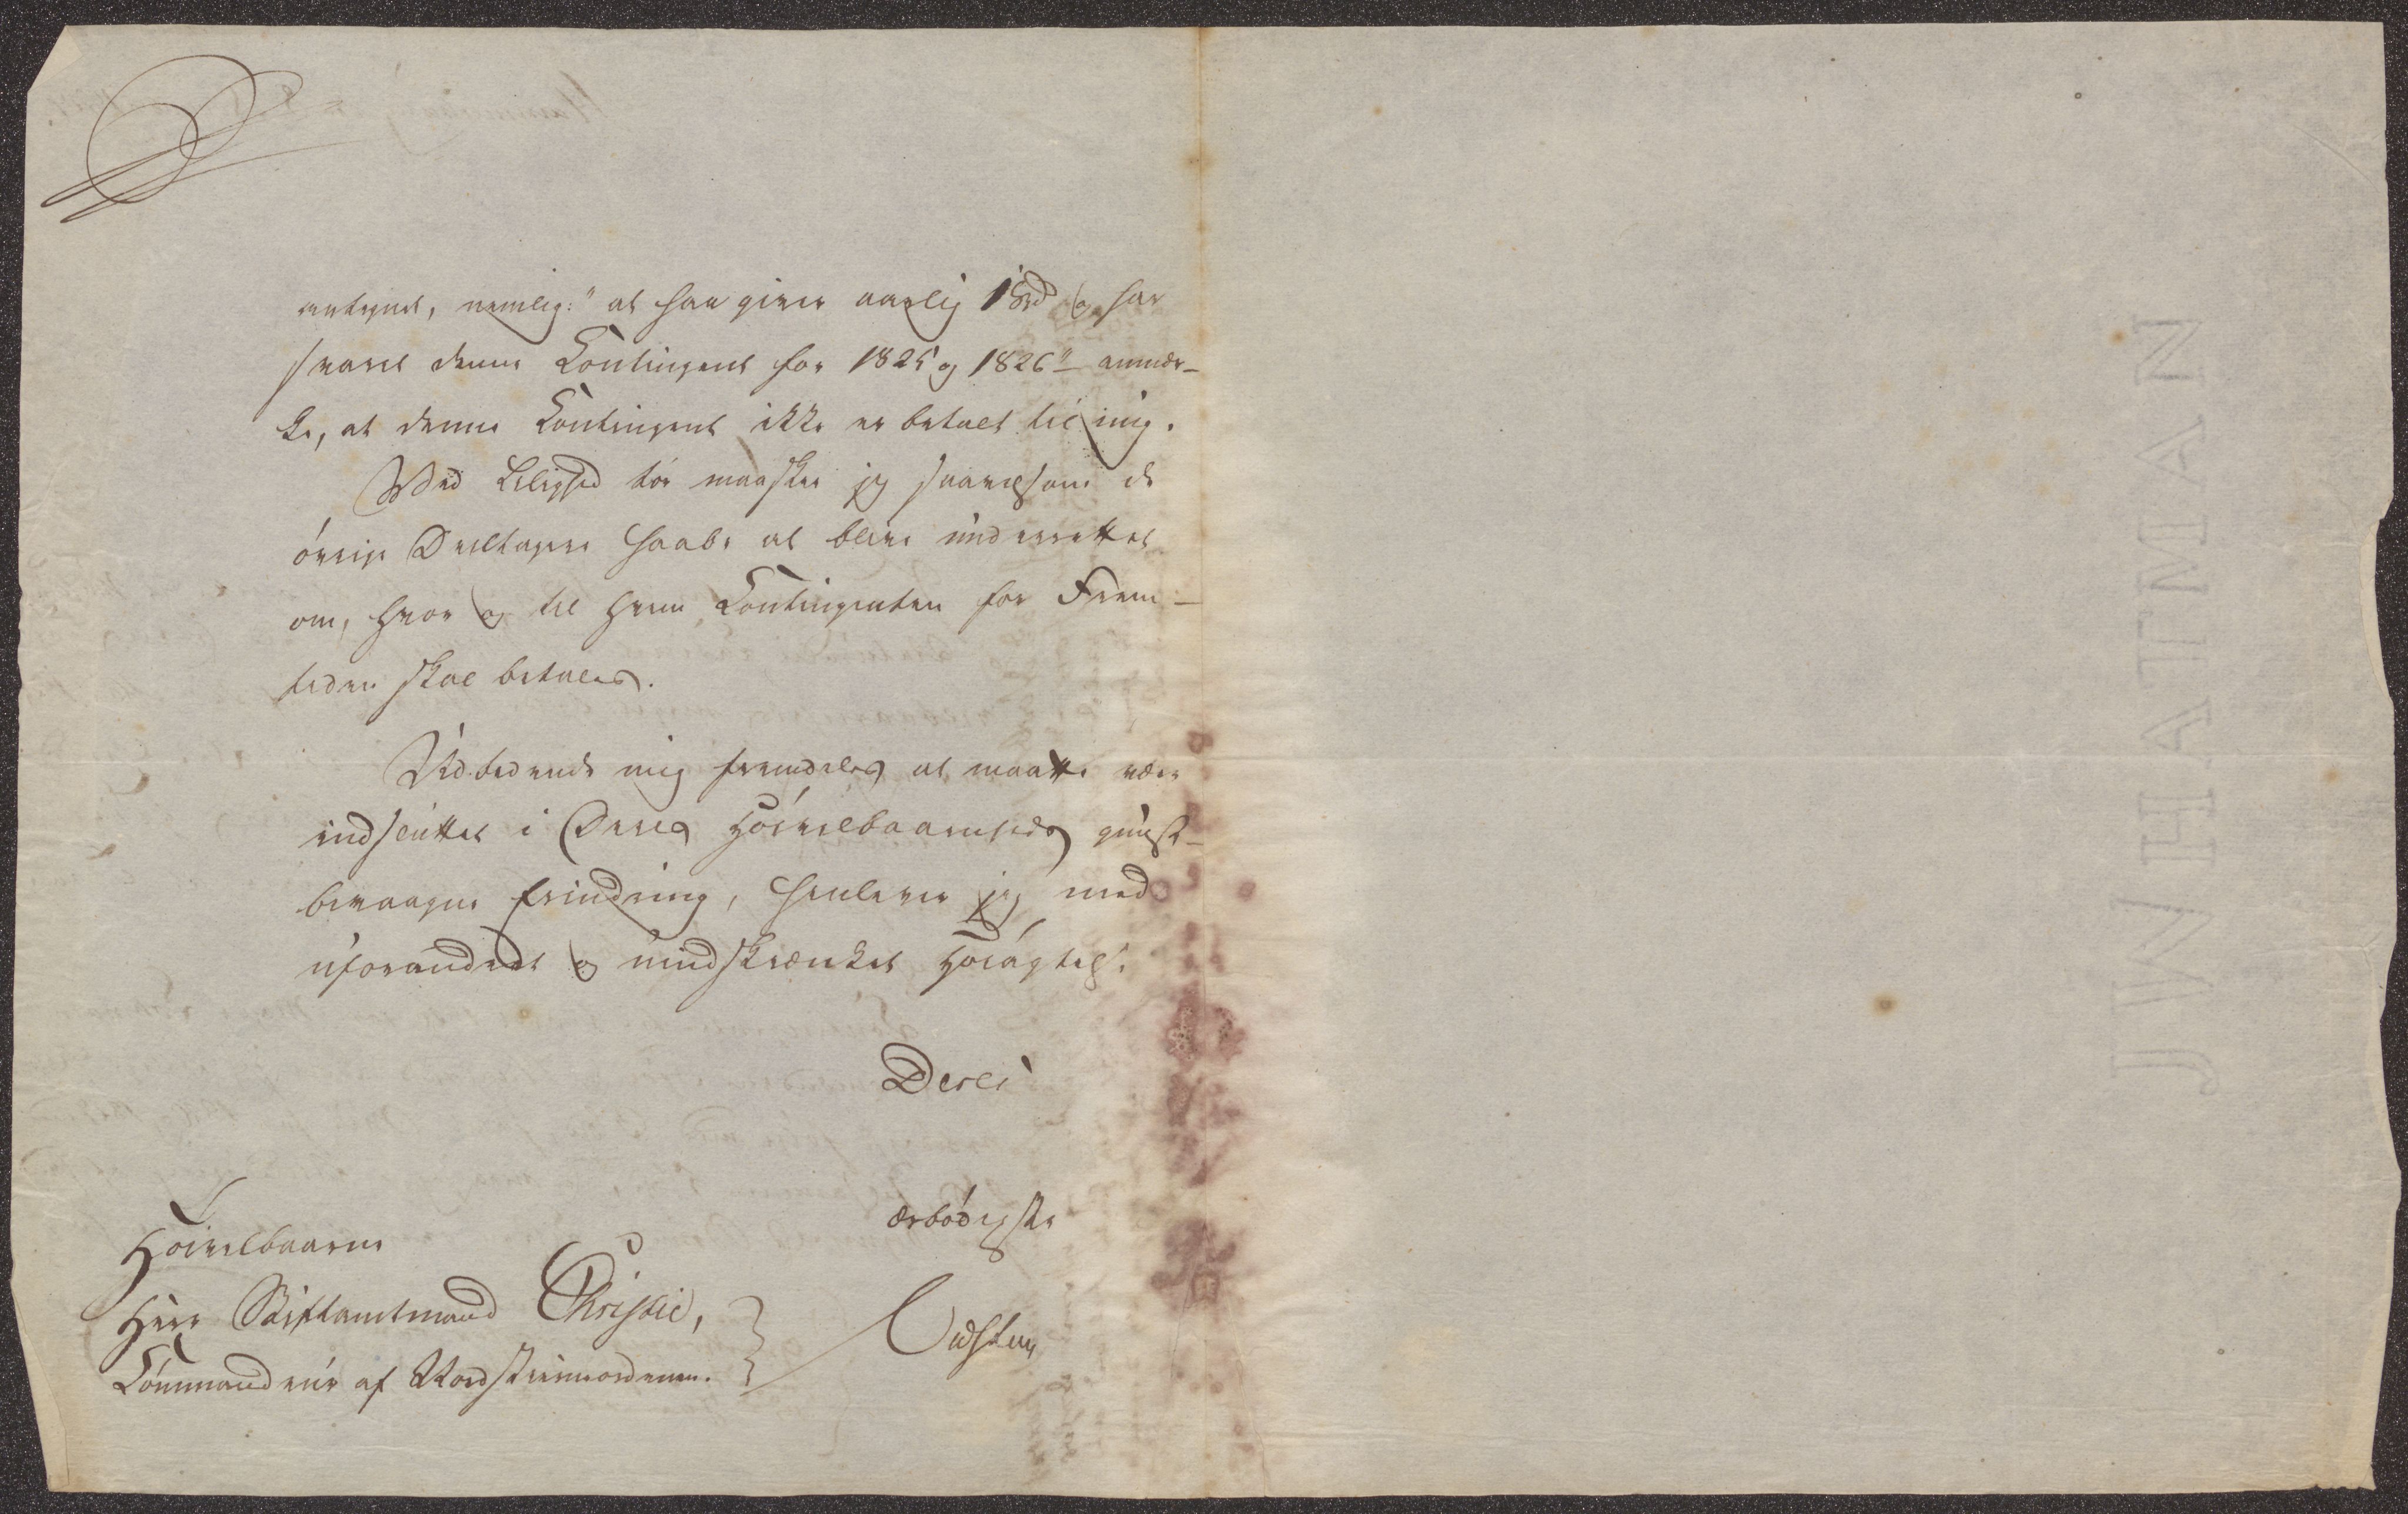 antegnet, nemlig: "at han giver aarlig 1 Spd og har
svaret denne Contingent for 1825 og 1826" anmær-
ke, at denne Contingent ikke er betalt til mig.
Ved Leilighed tör maaskee jeg saavelsom de
övrige Deeltagere haabe at blive underrettet
om, hvor og til hvem Contingenten for Frem-
tiden skal betales.
Udbedende mig fremdeles at maatte være
indsluttet i Deres Höivelbaarenheds gunst-
bevaagne Erindring, henlever jeg med
uforandret og uindskrænket Höiagtelse
Deres
ærbödigste
Höivelbaarne
Herr Stiftamtmand Christie,
Commandeur af Nordstierneordenen.
JWHATMAN